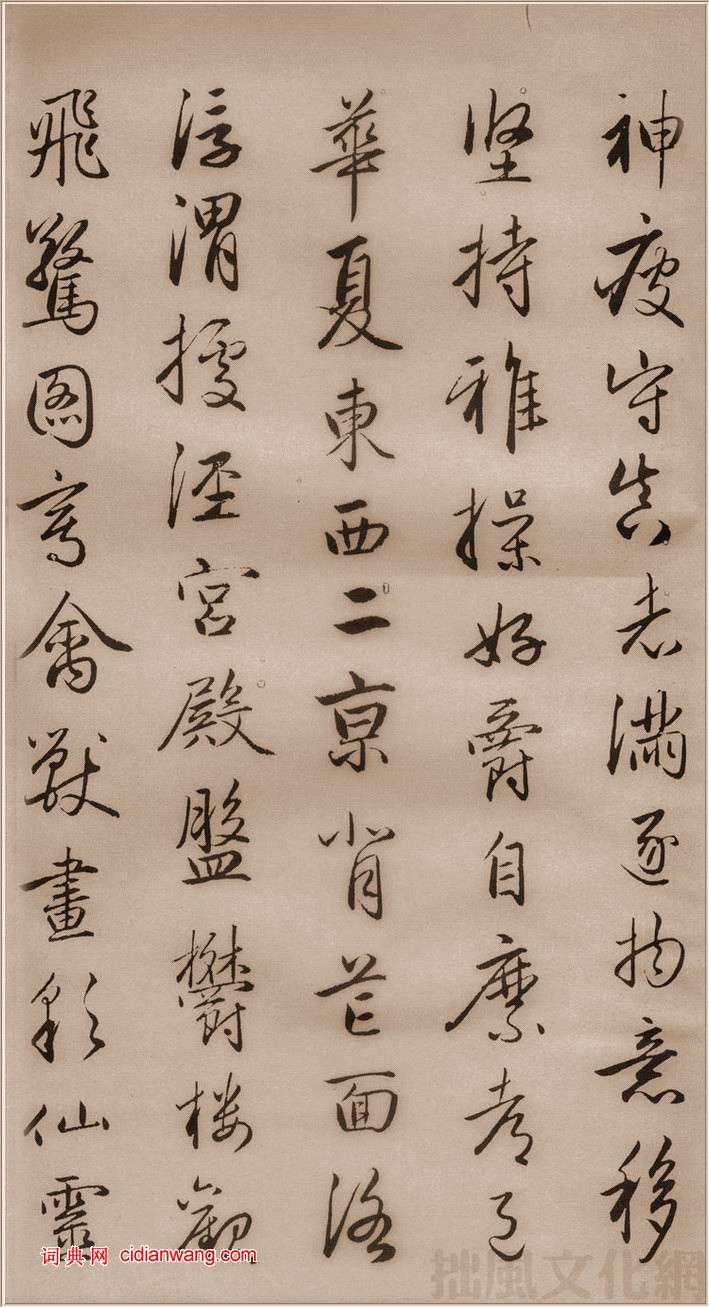 神疲守真志满逐物意移
坚持雅操好爵自縻都邑
華夏東西二京背芒面洛
浮渭據涇宮殿盤鬱楼觀
飛驚圖寫禽獸畫彩仙靈
词典网 cidianwang.com
拙風文化網